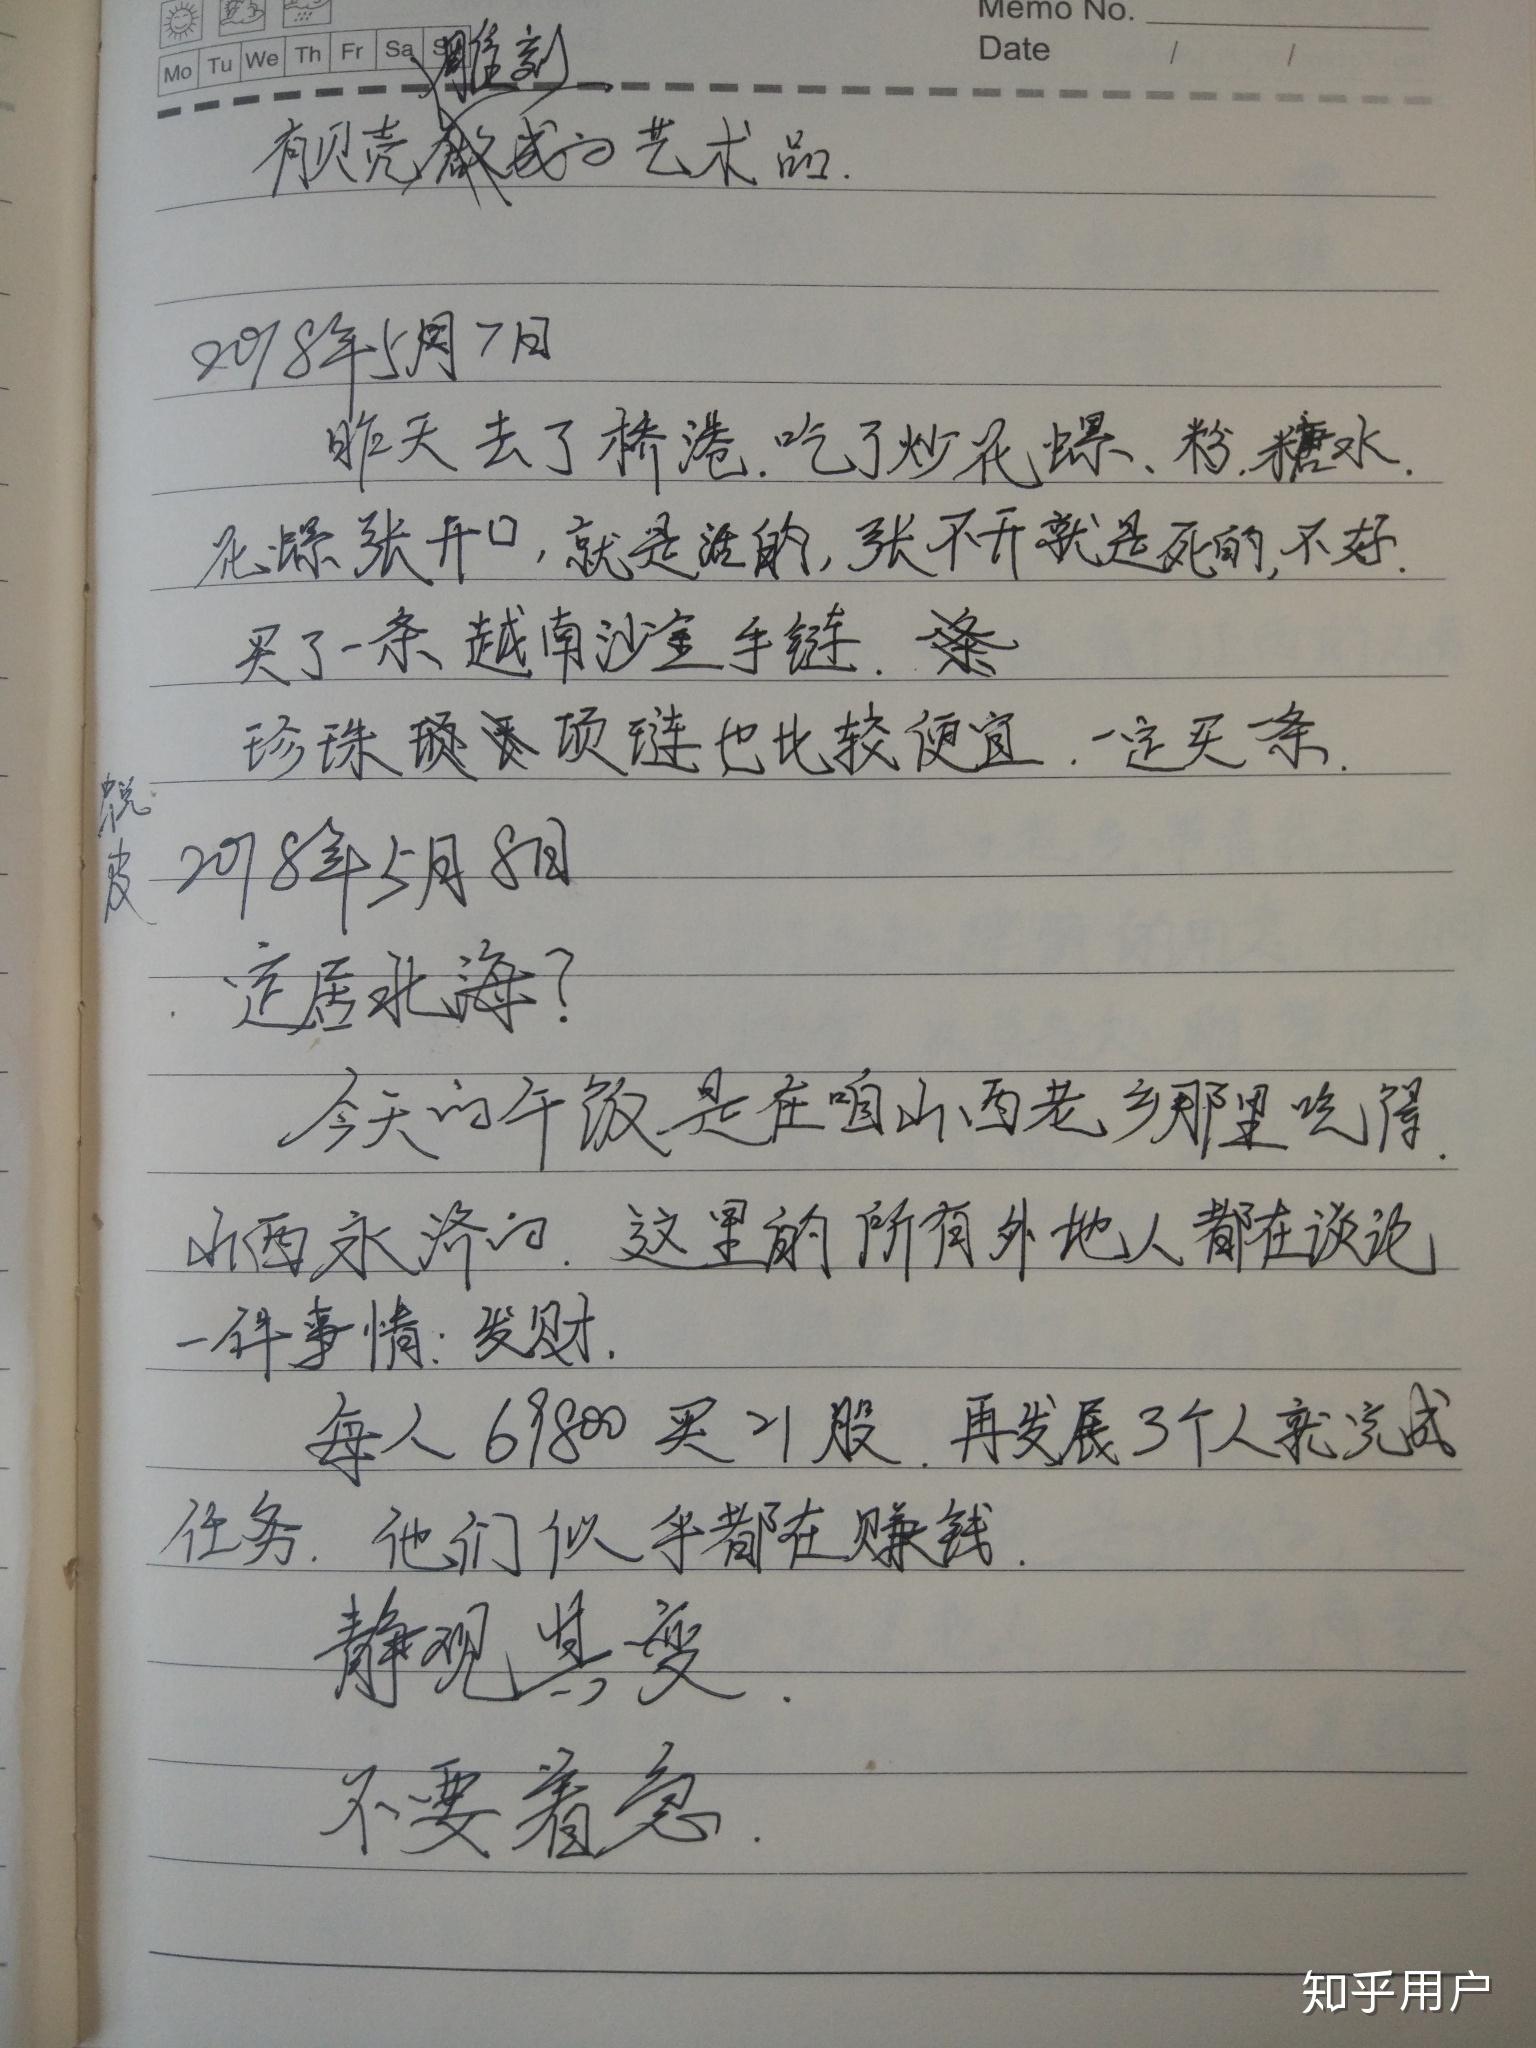 Memo No.
Mo Tu We Th Fr Sa S
Date / /
雕刻
有贝壳做成的艺术品.
2018年5月7日
昨天去了桥港.吃了炒花螺、粉.糖水.
花螺张开口,就是活的,张不开就是死的,不好.
买了一条越南沙金手链. 条
珍珠项 项链也比较便宜.一定买一条.
蜕皮
2018年5月8日
定居北海?
今天的午饭是在咱山西老乡那里吃得.
山西永济的.这里的所有外地人都在谈论
一件事情:发财.
每人69800买21股.再发展3个人就完成
任务.他们似乎都在赚钱.
静观其变.
不要着急.
知乎用户